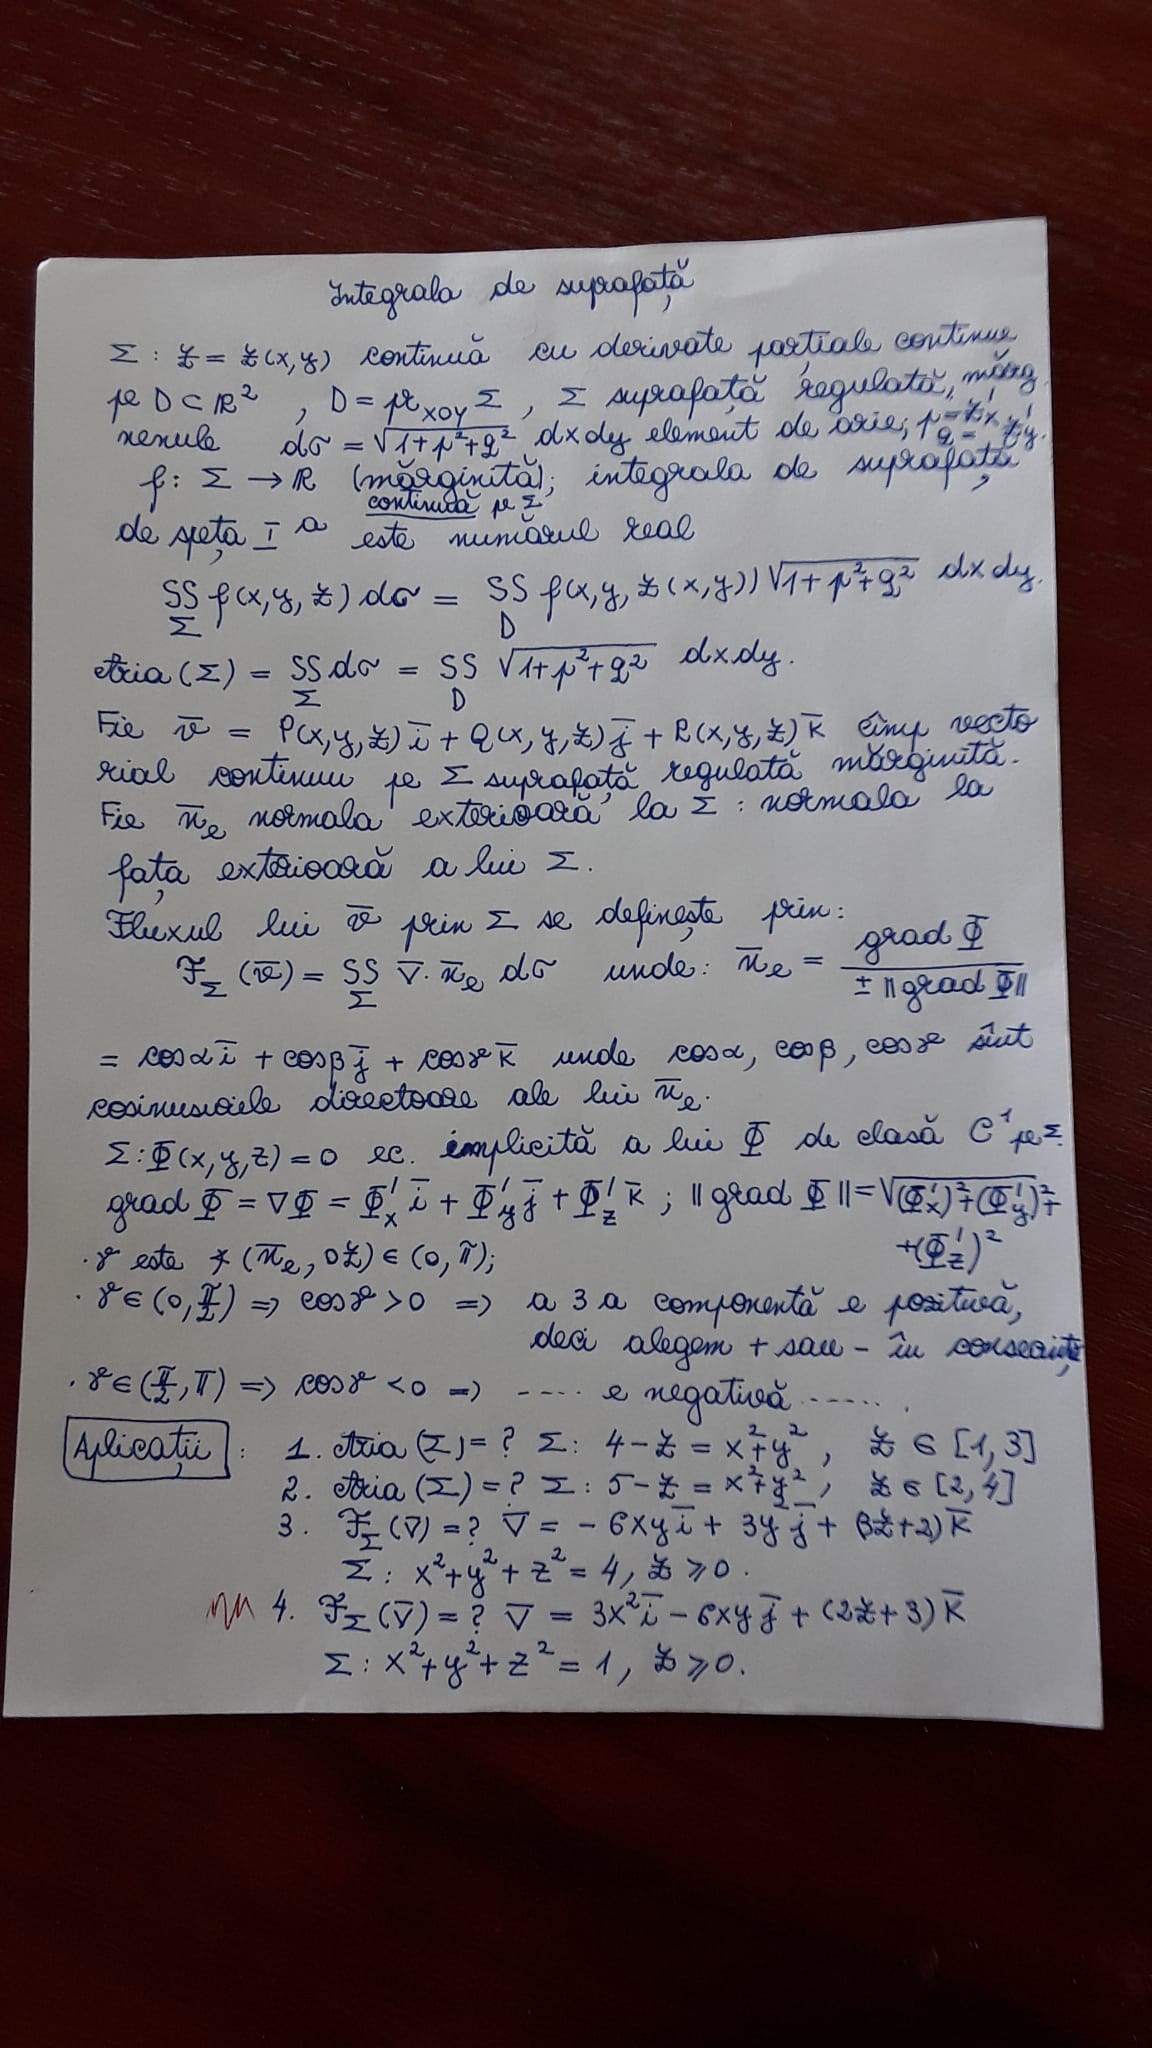 Integrala de suprafață
Σ : z = z(x,y) continuă cu derivate parțiale continue
pe D ⊂ ℝ² , D = pr_xOy Σ , Σ suprafață regulată, mărg.
nenule dσ = √(1+p²+q²) dxdy element de arie; p = z'x q = z'y.
f : Σ → ℝ (mărginită); integrala de suprafață
continuă pe Σ
de speța I a este numărul real
SS_Σ f(x,y,z) dσ = SS_D f(x,y,z(x,y)) √(1+p²+q²) dxdy.
Aria (Σ) = SS_Σ dσ = SS_D √(1+p²+q²) dxdy.
Fie v̄ = P(x,y,z) ī + Q(x,y,z) j̄ + R(x,y,z) k̄ cîmp vecto
rial continuu pe Σ suprafață regulată mărginită.
Fie n̄e normala exterioară la Σ : normala la
fața exterioară a lui Σ.
Fluxul lui v̄ prin Σ se definește prin:
F_Σ (v̄) = SS_Σ v̄ · n̄e dσ unde: n̄e = grad Φ / ± ||grad Φ||
= cosα ī + cosβ j̄ + cosγ k̄ unde cosα, cosβ, cosγ sînt
cosinusurile directoare ale lui n̄e.
Σ : Φ(x,y,z) = 0 ec. implicită a lui Φ de clasă C¹ pe Σ.
grad Φ = ∇Φ = Φ'x ī + Φ'y j̄ + Φ'z k̄ ; || grad Φ || = √((Φ'x)² + (Φ'y)² +
+(Φ'z)²
· γ este ∢ (n̄e, Oz) ∈ (0, π);
· γ ∈ (0, π/2) ⇒ cosγ > 0 ⇒ a 3 a componentă e pozitivă,
deci alegem + sau − în consecință
· γ ∈ (π/2, π) ⇒ cosγ < 0 ⇒ ---- e negativă ......
Aplicații : 1. Aria (Σ) = ? Σ : 4 − z = x² + y² , z ∈ [1, 3]
2. Aria (Σ) = ? Σ : 5 − z = x² + y² , z ∈ [2, 4]
3. F_Σ (v̄) = ? v̄ = − 6xy ī + 3y² j̄ + (3z+2) k̄
Σ : x² + y² + z² = 4 , z ⩾ 0.
4. F_Σ (v̄) = ? v̄ = 3x² ī − 6xy j̄ + (2z + 3) k̄
Σ : x² + y² + z² = 1 , z ⩾ 0.